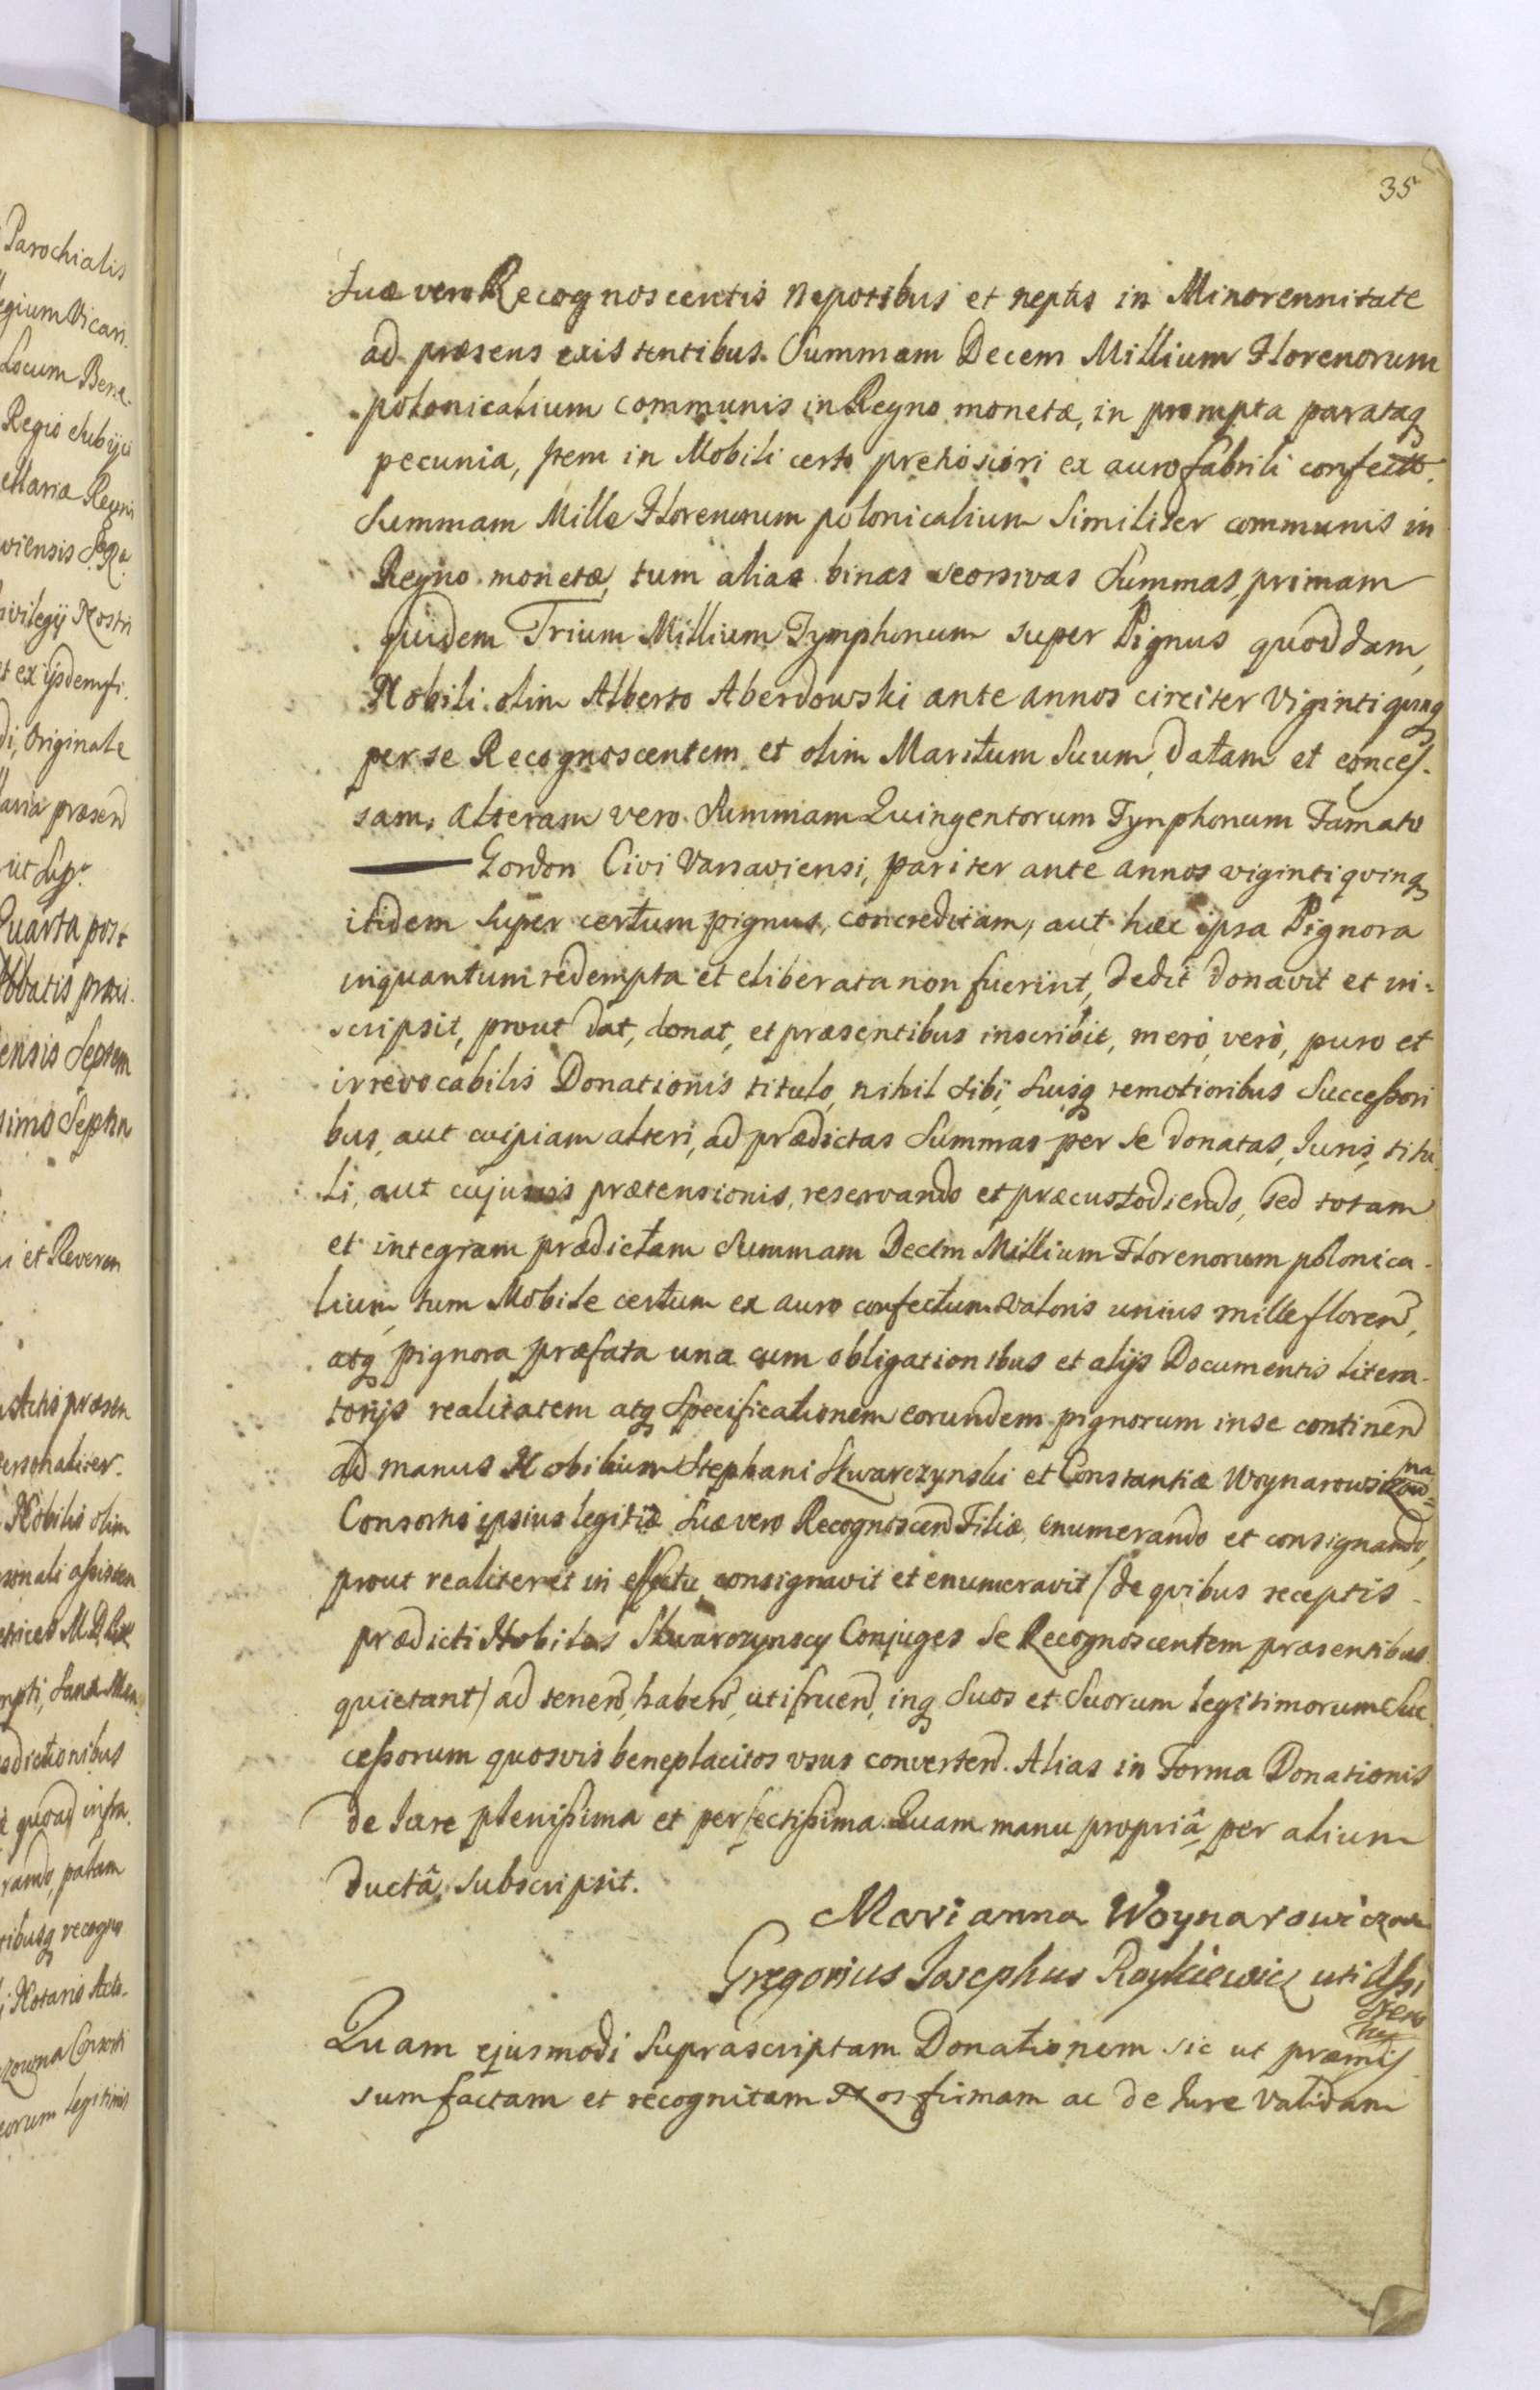 35
Suæ vero Recognoscentis Nepotibus et neptis in Minorennitate
ad præsens existentibus. Summam Decem Millium Florenorum
polonicalium communis in Regno monetæ, in prompta parataq
pecunia, Item in Mobili certo pretiosiori ex auro fabrili confecto.
Summam Mille Florenorum polonicalium Similiter communis in
Regno monetæ, tum alias binas seorsivas Summas, primam
quidem Trium Millium Tymphonum super Pignus quoddam,
Nobili olim Alberto Aberdowski ante annos circiter viginti quinq
per se Recognoscentem et olim Maritum Suum, datam et conces-
sam, alteram vero Summam Quingentorum Tynphonum Famato
Gordon Civi Varsaviensi, pariter ante annos viginti qvinq
itidem super certum pignus, concreditam, aut hæc ipsa Pignora
inquantum redempta et eliberata non fuerint, dedit donavit et in=
scripsit, prout dat, donat, et præsentibus inscribit, merò, verò, puro et
irrevocabilis Donationis titulo, nihil sibi, suisq remotioribus Successori
bus, aut cuipiam alteri, ad prædictas Summas per se donatas, Juris, titu
li, aut cujusvis prætensionis, reservando et præcustodiendo, sed totam
et integram prædictam Summam Decem Millium Florenorum polonica-
lium, tum Mobile certum ex auro confectum valoris unius mille floren,
atq pignora præfata una cum obligationibus et alijs Documentis litera-
torijs realitatem atq Specificationem eorundem pignorum in se continen
ad manus Nobilium Stephani Skwarczynski et Constantiæ
Consortis ipsius legitiæ Suæ vero Recognoscen Filiæ, enumerando et consignando,
prout realiter et in effectu consignavit et enumeravit / de qvibus receptis
prædicti Nobiles Skwarczynscy Conjuges se Recognoscentem præsentibus
quietant / ad tenen, haben, utifruen, inq Suos et Suorum legitimorum Suc
cessorum quosvis beneplacitos usus converten. Alias in Forma Donationis
de Jure plenissima et perfectissima. Quam manu propriâ per alium
ductâ, subscripsit.
Marianna Woynarowiczowa
Gregorius Josephus Raykiewicz uti Assi
sten
Quam ejusmodi Suprascriptam Donationem sic ut præmis
sum factam et recognitam Nos firmam ac de Jure validam